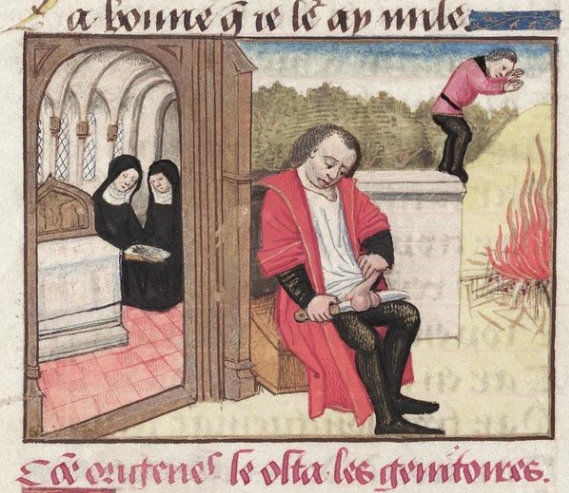 a bonne q̃ ie ay
Cõe origenes se osta les genitoires.